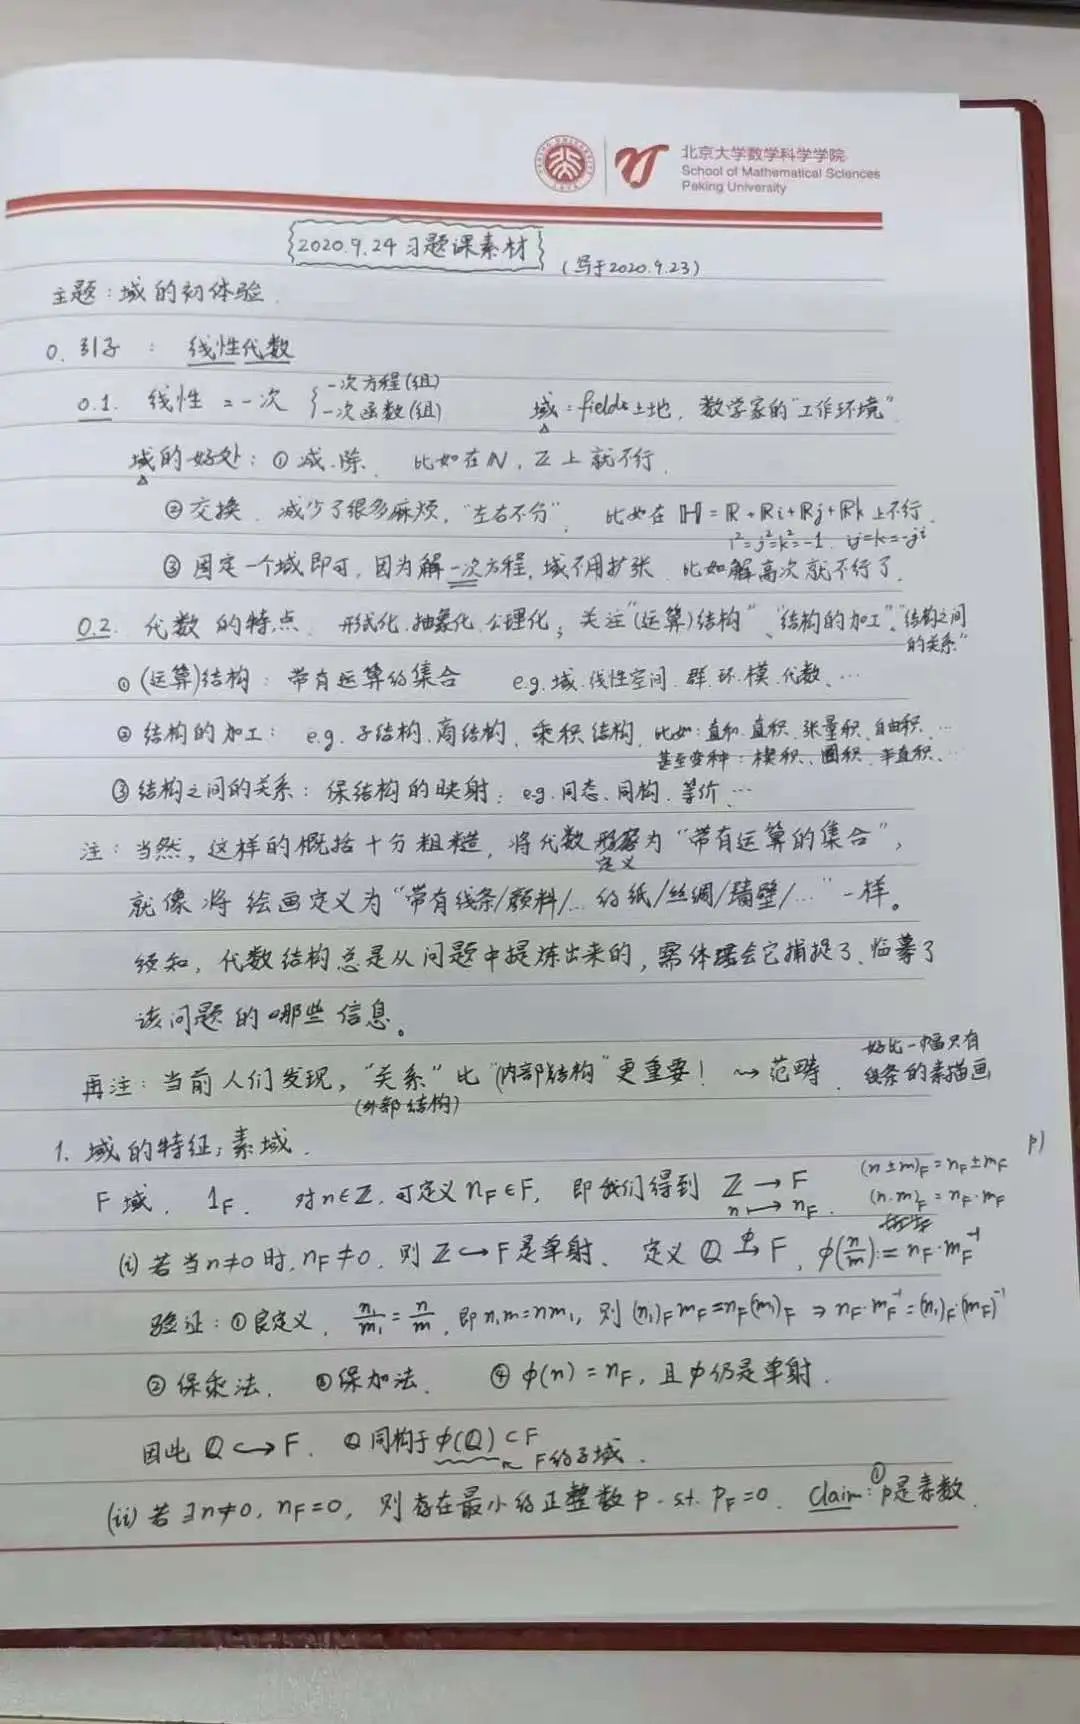 北京大学数学科学学院
School of Mathematical Sciences
Peking University
2020.9.24 习题课素材
(写于2020.9.23)
主题：域的初体验.
0. 引子：线性代数
0.1. 线性 = 一次 { 一次方程(组) 一次函数(组) 域：fields 土地, 数学家的"工作环境"
域的好处：① 减.除. 比如在 ℕ, ℤ 上就不行.
② 交换. 减少了很多麻烦, "左右不分", 比如在 ℍ = ℝ+ℝi+ℝj+ℝk 上不行.
i²=j²=k²=-1. ij=k=-ji
③ 固定一个域即可, 因为解一次方程, 域不用扩张. 比如解高次就不行了.
0.2. 代数的特点. 形式化.抽象化.公理化; 关注"(运算)结构"、"结构的加工"、"结构之间的关系"
① (运算)结构：带有运算的集合 e.g. 域.线性空间.群.环.模.代数、…
② 结构的加工：e.g. 子结构.商结构、乘积结构、比如：直和.直积.张量积.自由积、…
甚至变种：楔积、圈积、半直积、…
③ 结构之间的关系：保结构的映射：e.g. 同态、同构、等价、…
注：当然, 这样的概括十分粗糙, 将代数定义为"带有运算的集合",
就像将绘画定义为"带有线条/颜料/… 的纸/丝绸/墙壁/…"一样。
须知, 代数结构总是从问题中提炼出来的, 需体会它捕捉了、临摹了
该问题的哪些信息。
好比一幅只有线条的素描画
再注：当前人们发现, "关系"比"内部结构"更重要! ⇝ 范畴.
(外部结构)
1. 域的特征; 素域.
p)
F 域. 1_F. 对 n∈ℤ, 可定义 n_F∈F, 即我们得到 ℤ → F n ↦ n_F. (n±m)_F = n_F±m_F
(n·m)_F = n_F·m_F
(i) 若当 n≠0 时, n_F≠0. 则 ℤ ↪ F 是单射. 定义 ℚ →^φ F, φ(n/m) := n_F·m_F⁻¹
验证：① 良定义. n₁/m₁ = n/m, 即 n₁m = nm₁, 则 (n₁)_F m_F = n_F(m₁)_F ⇒ n_F·m_F⁻¹ = (n₁)_F·(m_F)⁻¹
② 保乘法. ③ 保加法. ④ φ(n) = n_F, 且 φ 仍是单射.
因此 ℚ ↪ F. ℚ 同构于 φ(ℚ) ⊂ F
F的子域.
(ii) 若 ∃n≠0, n_F=0, 则存在最小的正整数 p. s.t. p_F=0. Claim:① p是素数.